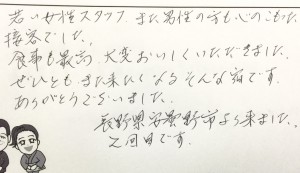 若い女性スタッフ、また男性の方も心のこもった
接客でした。
食事も最高、大変おいしくいただきました。
ぜひともまた来たくなるそんな宿です。
ありがとうございました。
長野県安曇野市より来ました。
2回目です。